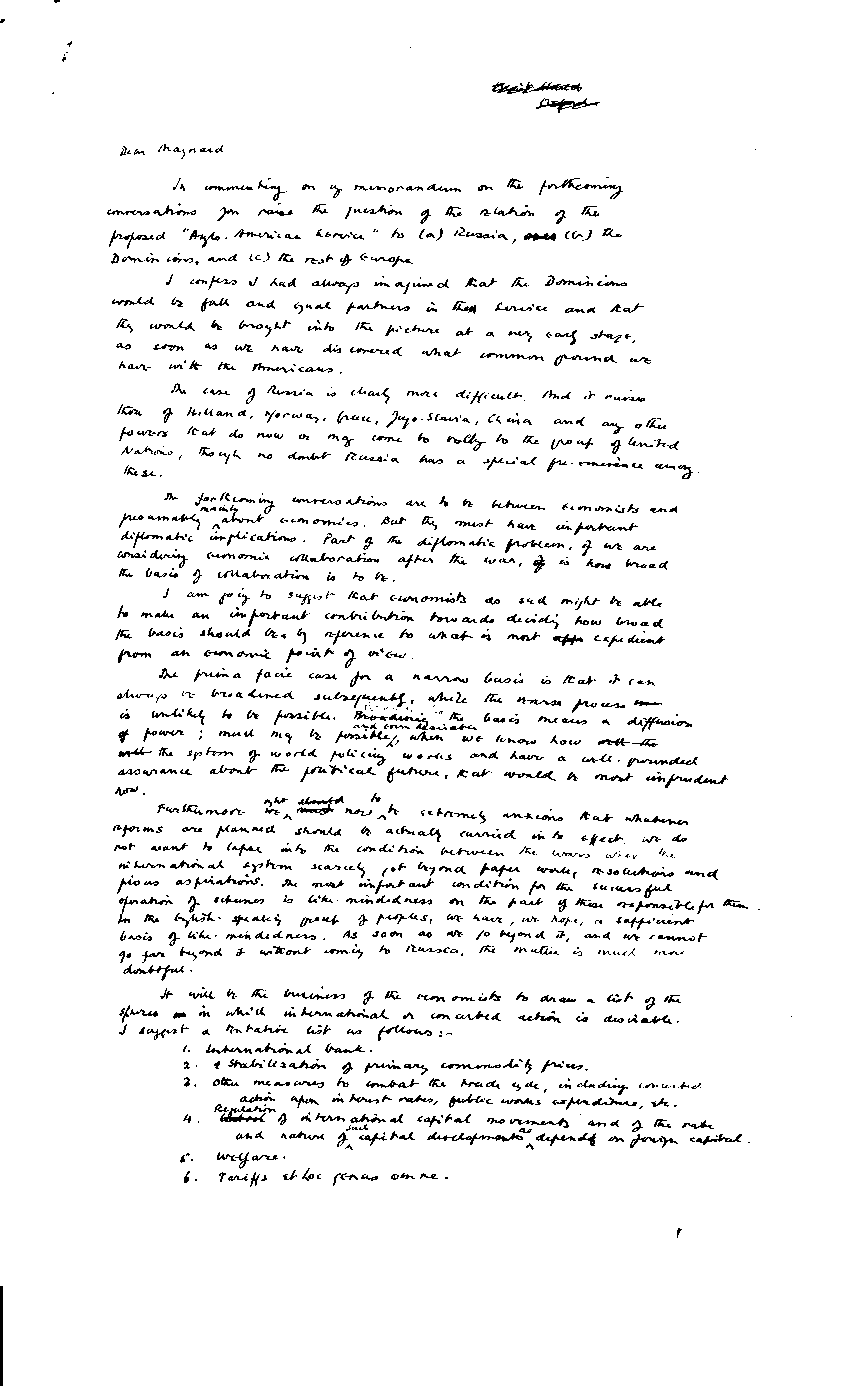 Christ Church
Oxford
Dear Maynard
In commenting on my memorandum on the forthcoming
conversations you raise the question of the relation of the
proposed "Anglo-American Service" to (a) Russia, (b) the
Dominions, and (c) the rest of Europe.
I confess I had always imagined that the Dominions
would be full and equal partners in the Service and that
they would be brought into the picture at a very early stage,
as soon as we have discovered what common ground we
have with the Americans.
The case of Russia is clearly more difficult. And it raises
that of Holland, Norway, Greece, Jugo-Slavia, China and any other
powers that do now or may come to rally to the group of United
Nations, though no doubt Russia has a special pre-eminence among
these.
The forthcoming conversations are to be between economists and
presumably mainly about economics. But they must have important
diplomatic implications. Part of the diplomatic problem, if we are
considering economic collaboration after the war, is how broad
the basis of collaboration is to be.
I am going to suggest that economists as such might be able
to make an important contribution towards deciding how broad
the basis should be by reference to what is most expedient
from an economic point of view.
The prima facie case for a narrow basis is that it can
always be broadened subsequently, while the reverse process
is unlikely to be possible. Broadening the basis means a diffusion
of power; much may be possible, and even desirable, when we know how
the system of world policing works and have a well-grounded
assurance about the political future, that would be most imprudent
now.
Furthermore we ought now to be extremely anxious that whatever
reforms are planned should be actually carried into effect. We do
not want to lapse into the condition between the wars when the
international system scarcely got beyond paper work, resolutions and
pious aspirations. The most important condition for the successful
operation of schemes is like-mindedness on the part of those responsible for them.
In the English-speaking group of peoples, we have, we hope, a sufficient
basis of like-mindedness. As soon as we go beyond it, and we cannot
go far beyond it without coming to Russia, the matter is much more
doubtful.
It will be the business of the economists to draw a list of the
spheres in which international or concerted action is desirable.
I suggest a tentative list as follows:-
1. International bank.
2. Stabilization of primary commodity prices.
3. Other measures to combat the trade cycle, including concerted
action upon interest rates, public works expenditure, etc.
4. Regulation of international capital movements and of the rate
and nature of such capital developments as depend on foreign capital.
5. Welfare.
6. Tariffs et hoc genus omne.